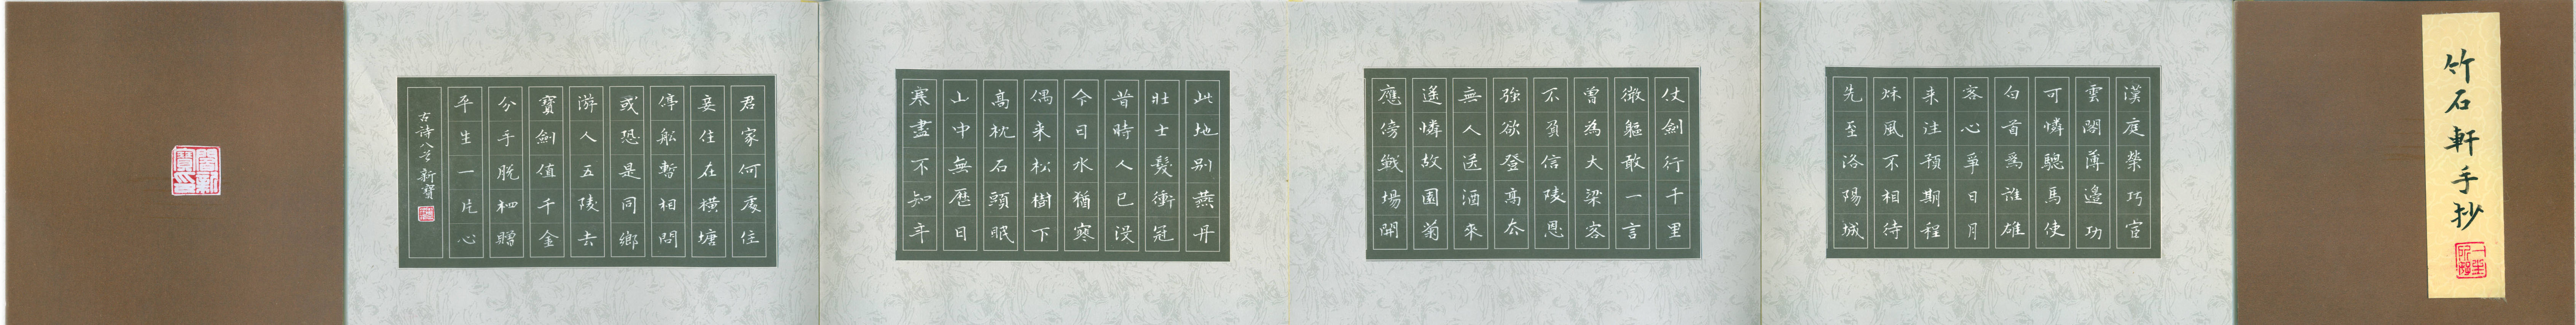 竹石軒手抄
漢庭榮巧宦
雲閣薄邊功
可憐驄馬使
白首爲誰雄
客心爭日月
来往預期程
秌風不相待
先至洛陽城
仗劍行千里
微軀敢一言
曾為大梁客
不負信陵恩
強欲登高去
無人送酒來
遙憐故園菊
應傍戰場開
此地别燕丹
壯士髮衝冠
昔時人已没
今日水猶寒
偶来松樹下
高枕石頭眠
山中無歷日
寒盡不知年
君家何處住
妾住在橫塘
停船暫相問
或恐是同鄉
游人五陵去
寶劍值千金
分手脱相贈
平生一片心
古詩八首 新寶